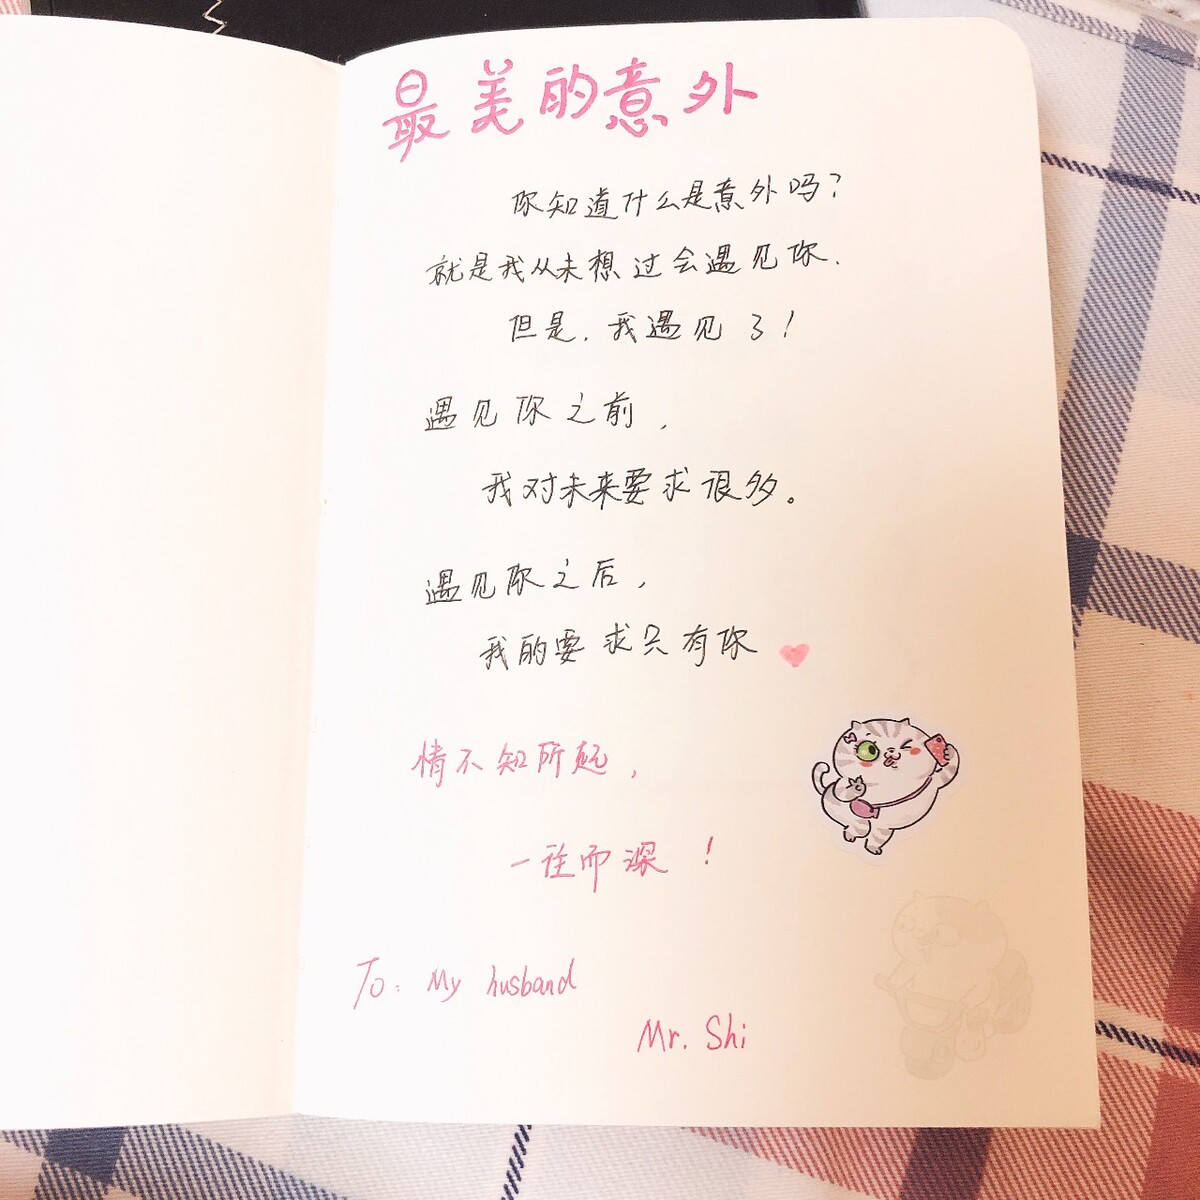 最美的意外
你知道什么是意外吗？
就是我从未想过会遇见你.
但是.我遇见了！
遇见你之前，
我对未来要求很多。
遇见你之后，
我的要求只有你
情不知所起，
一往而深！
To: My husband
Mr. Shi